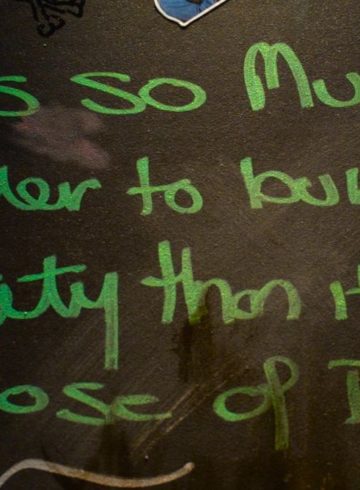 s so Mu
der to bui
ety than it
ose of I